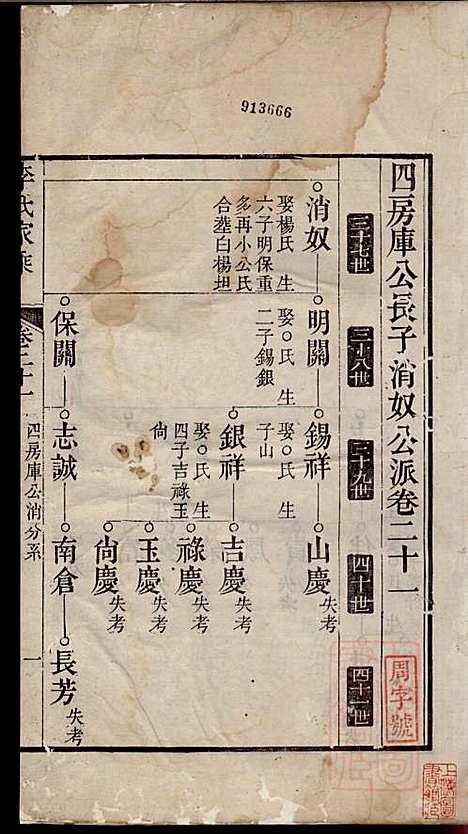 913666
四房庫公長子消奴公派卷二十一
周字號
三十七世
三十八世
三十九世
四十世
四十一世
消奴
娶楊氏 生
六子明保重
多再小公氏
合塟白楊坦
明關
娶○氏 生
二子錫銀
錫祥
娶○氏 生
子山
山慶 失考
銀祥
娶○氏 生
四子吉祿玉
尙
吉慶 失考
祿慶 失考
玉慶 失考
尙慶 失考
保關
志誠
南倉
長芳 失考
李氏家乘
卷二十一
四房庫公消分系
一